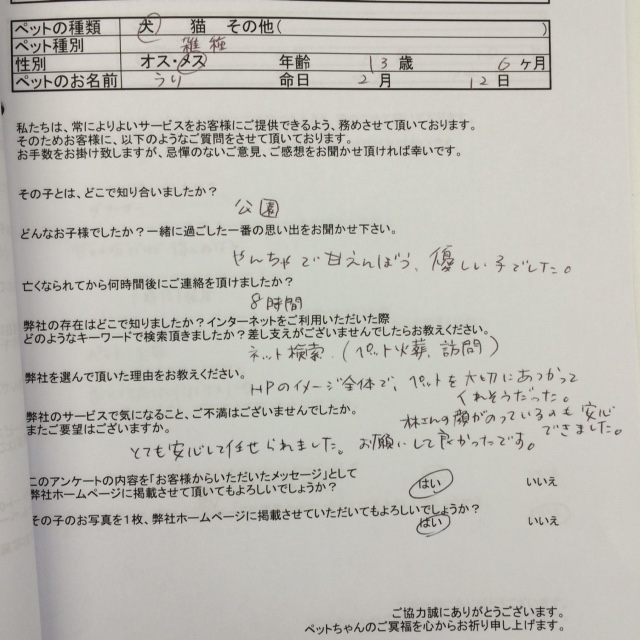 ペットの種類 犬 猫 その他( )
ペット種別 雑種
性別 オス・メス 年齢 13 歳 6 ヶ月
ペットのお名前 うり 命日 2 月 12 日
私たちは、常によりよいサービスをお客様にご提供できるよう、務めさせて頂いております。
そのためお客様に、以下のようなご質問をさせて頂いております。
お手数をお掛け致しますが、忌憚のないご意見、ご感想をお聞かせ頂ければ幸いです。
その子とは、どこで知り合いましたか？
公園
どんなお子様でしたか？一緒に過ごした一番の思い出をお聞かせ下さい。
やんちゃで甘えんぼう、優しい子でした。
亡くなられてから何時間後にご連絡を頂けましたか？
8時間
弊社の存在はどこで知りましたか？インターネットをご利用いただいた際
どのようなキーワードで検索頂きましたか？差し支えがございませんでしたらお教えください。
ネット検索.(ペット火葬、訪問)
弊社を選んで頂いた理由をお教えください。
HPのイメージ全体で、ペットを大切にあつかって
くれそうだった。
林さんの顔がのっているのも安心
できました。
弊社のサービスで気になること、ご不満はございませんでしたか。
またご要望はございますか。
とても安心して任せられました。お願いして良かったです。
このアンケートの内容を「お客様からいただいたメッセージ」として
弊社ホームページに掲載させて頂いてもよろしいでしょうか？ はい いいえ
その子のお写真を1枚、弊社ホームページに掲載させていただいてもよろしいでしょうか？
はい いいえ
ご協力誠にありがとうございます。
ペットちゃんのご冥福を心からお祈り申し上げます。